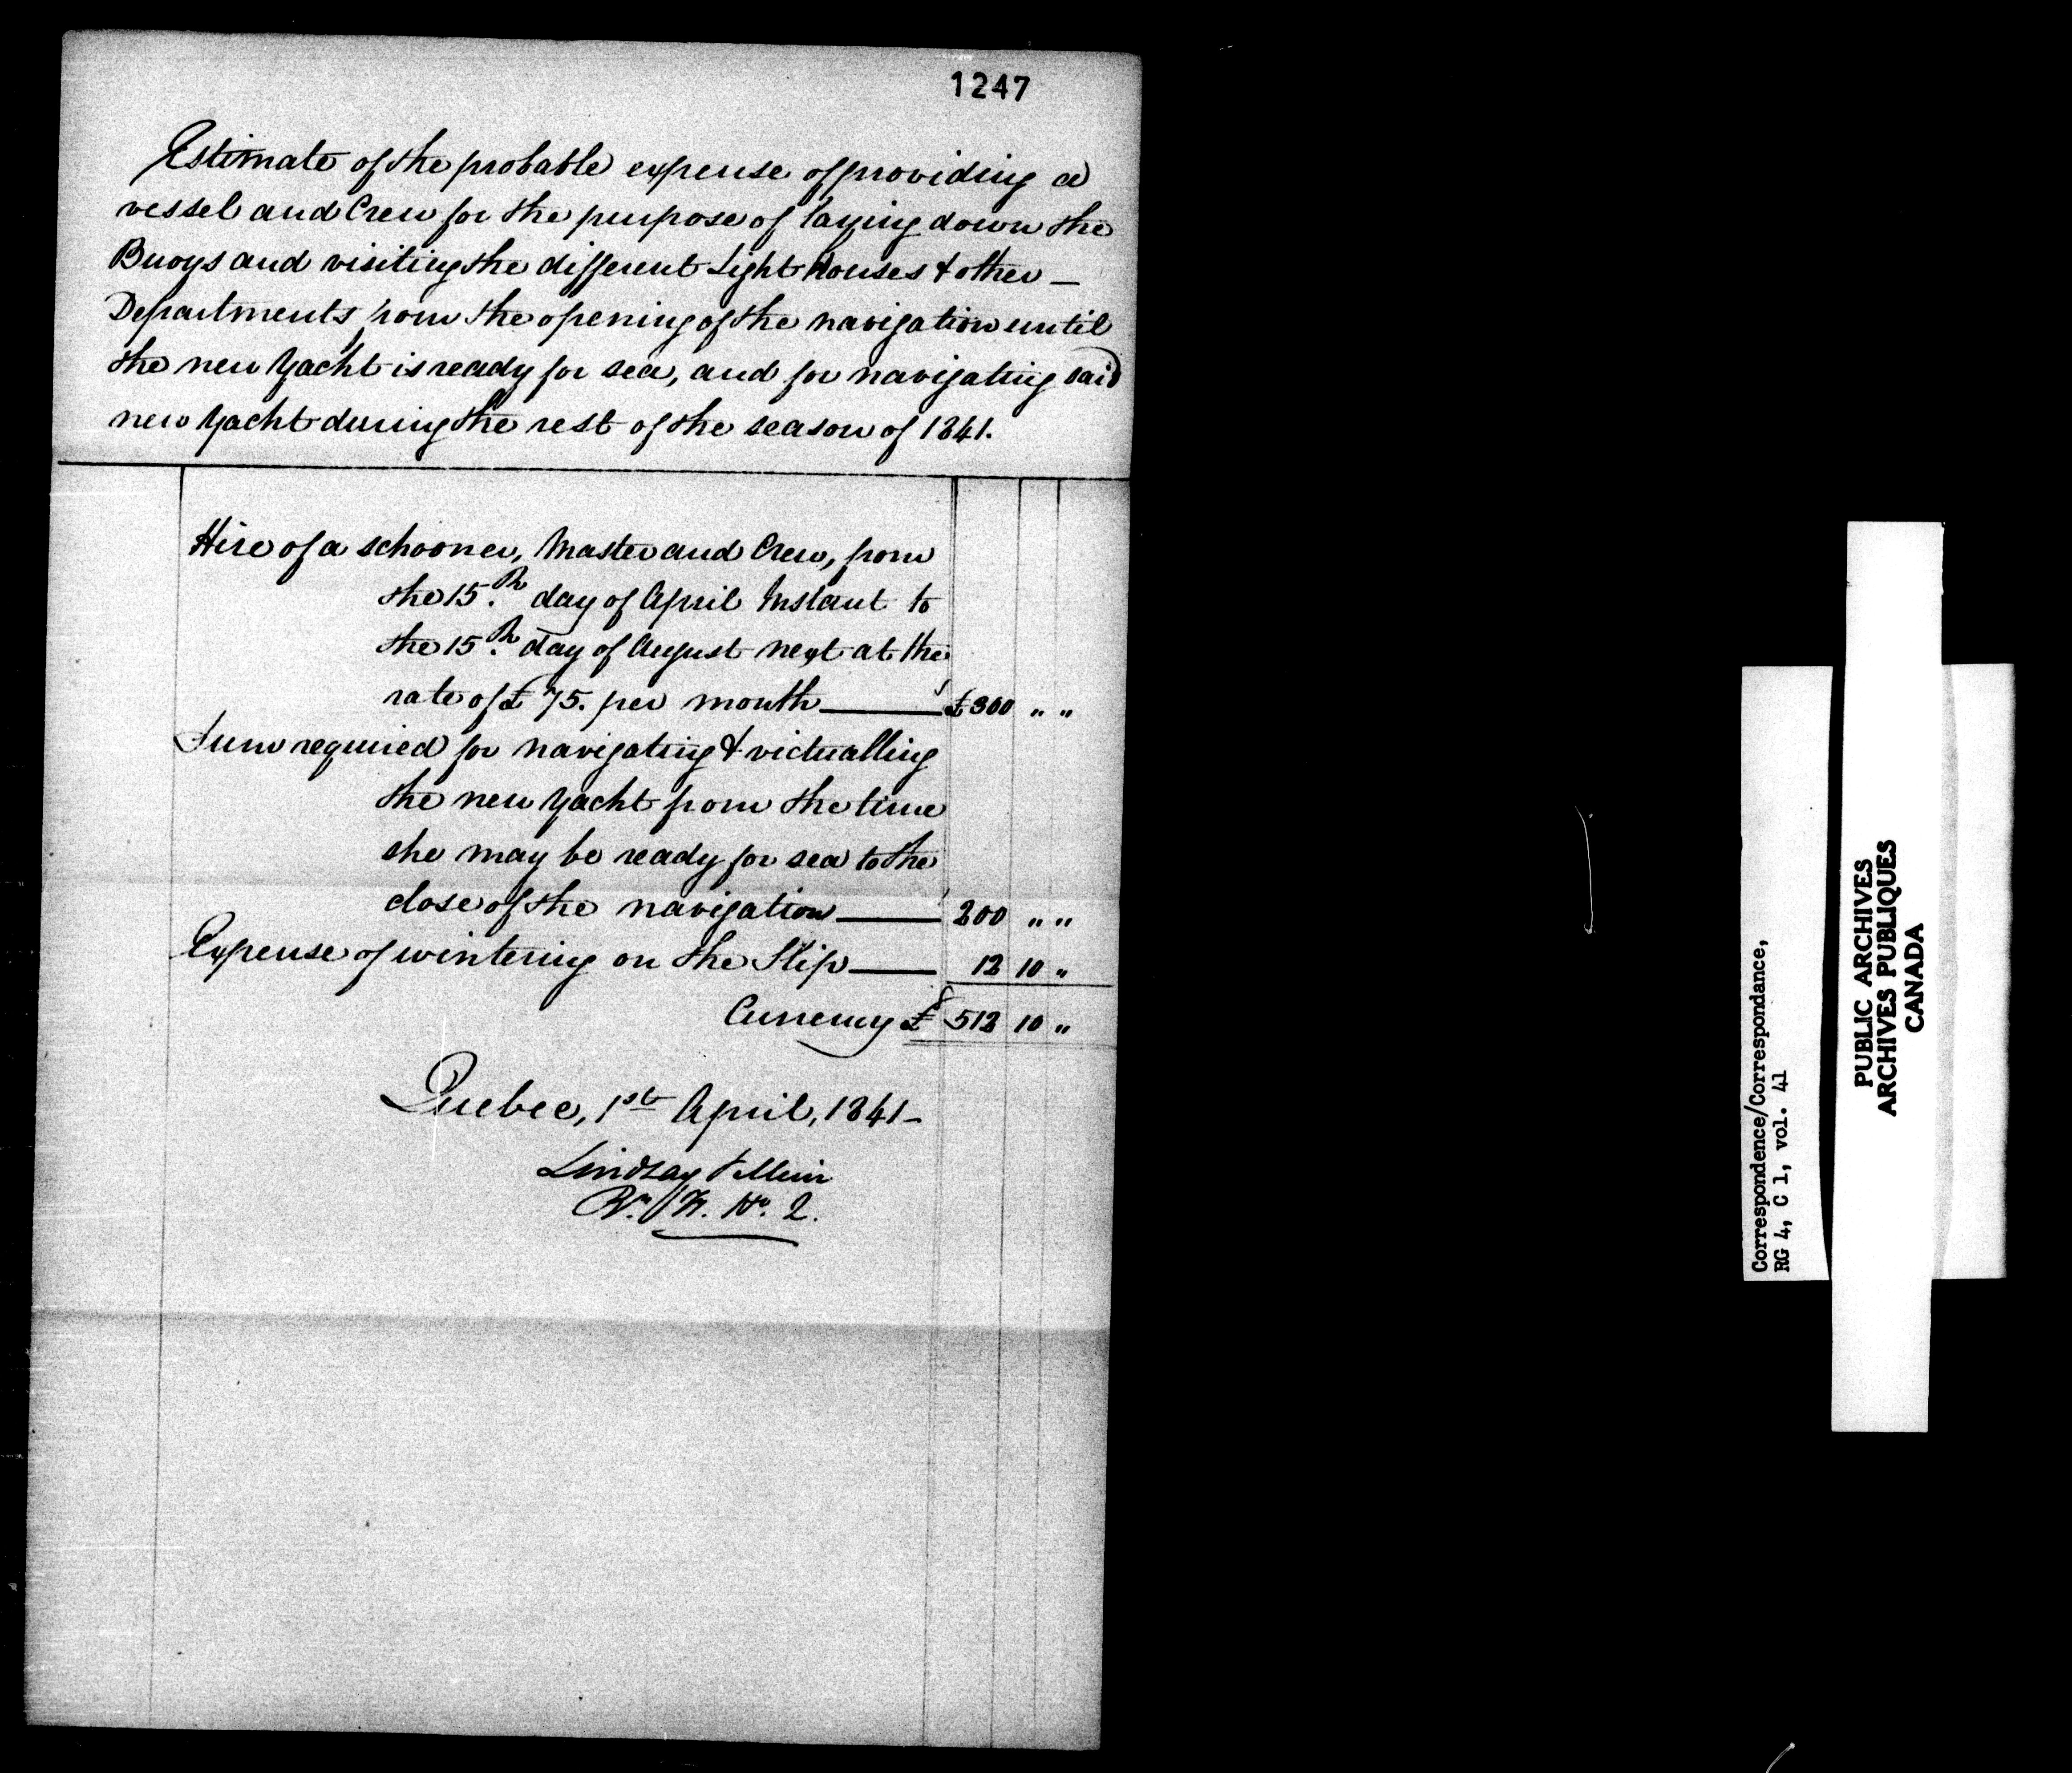 1247
Estimate of the probable expense of providing a
vessel and Crew for the purpose of laying down the
Buoys and visiting the different Light Houses & other —
Departments from the opening of the navigation until
the new Yacht is ready for sea, and for navigating said
new Yacht during the rest of the season of 1841.
Hire of a schooner, Master and Crew, from
the 15.th day of April Instant to
the 15.th day of August next at the
rate of £75. per month £300 " "
Sum required for navigating & victualling
the new Yacht from the time
she may be ready for sea to the
close of the navigation 200 " "
Expense of wintering on the Slip 12 10 "
Currency £ 512 10 "
Quebec, 1st April, 1841 —
Lindsay
T. H. Q.
Correspondence/Correspondance,
RG 4, C 1, vol. 41
PUBLIC ARCHIVES
ARCHIVES PUBLIQUES
CANADA